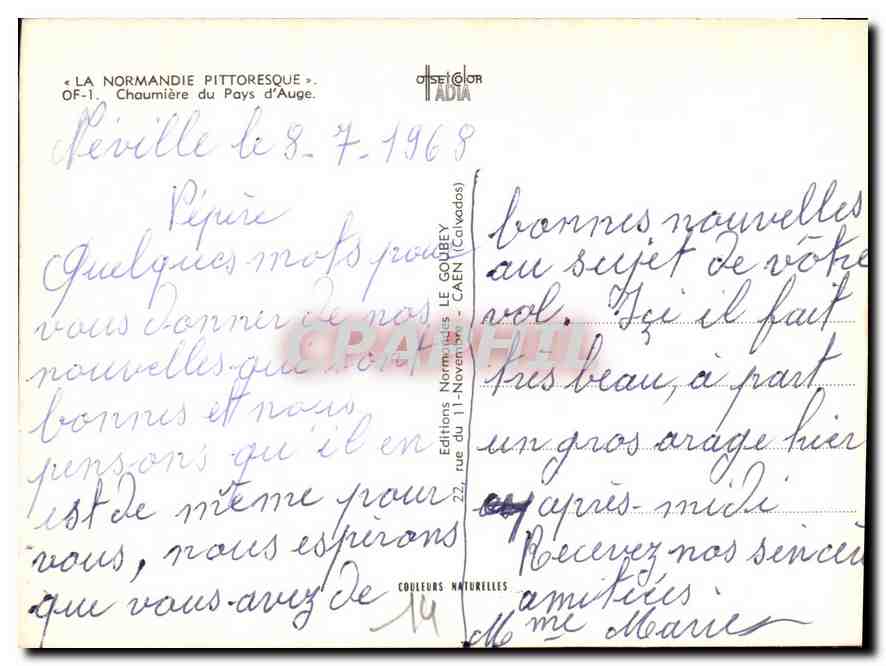 « LA NORMANDIE PITTORESQUE ».
OF-1. Chaumière du Pays d'Auge.
OFFSET COLOR
IADIA
Néville le 8-7-1968
Pépère
Quelques mots pour
vous donner de nos
nouvelles qui sont
bonnes et nous
pensons qu'il en
est de même pour
vous, nous espérons
que vous avez de
bonnes nouvelles
au sujet de vôtre
vol. Içi il fait
très beau, à part
un gros orage hier
après-midi
Recevez nos sincères
amitiés.
Mme Marie
Editions Normandes LE GOUBEY
22, rue du 11-Novembre - CAEN (Calvados)
COULEURS NATURELLES
14
CPARPHIL